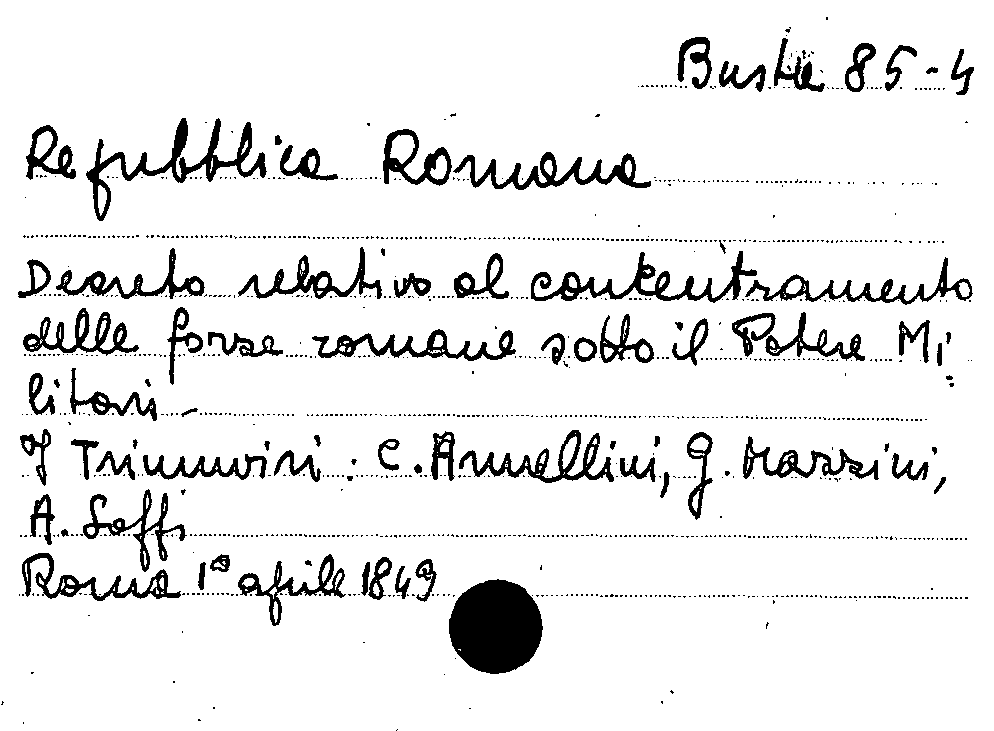 Busta 85-4
Repubblica Romana
Decreto relativo al concentramento
delle forze romane sotto il Potere Mi
litari -
I Triumviri: C. Armellini, G. Mazzini,
A. Saffi
Roma 1º aprile 1849